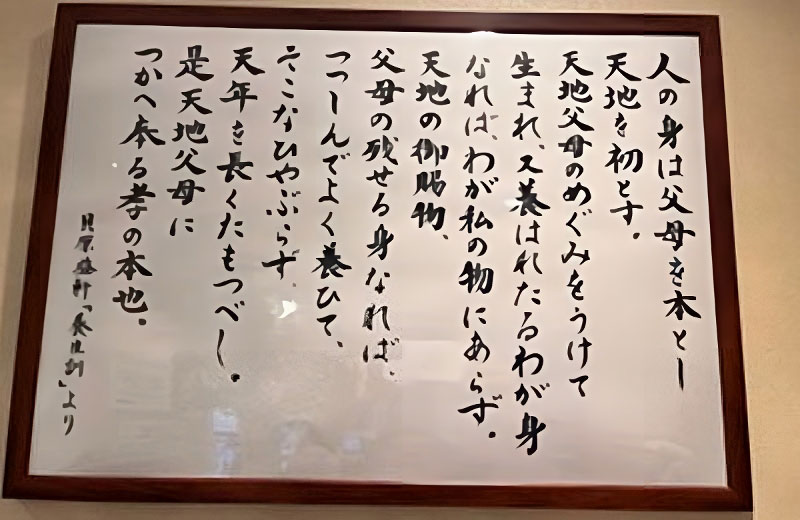 人の身は父母を本とし
天地を初とす。
天地父母のめぐみをうけて
生まれ、又養はれたるわが身
なれば、わが私の物にあらず。
天地の御賜物、
父母の残せる身なれば、
つつしんでよく養ひて、
そこなひやぶらず
天年を長くたもつべし。
是天地父母に
つかへ奉る孝の本也。
貝原益軒「養生訓」より